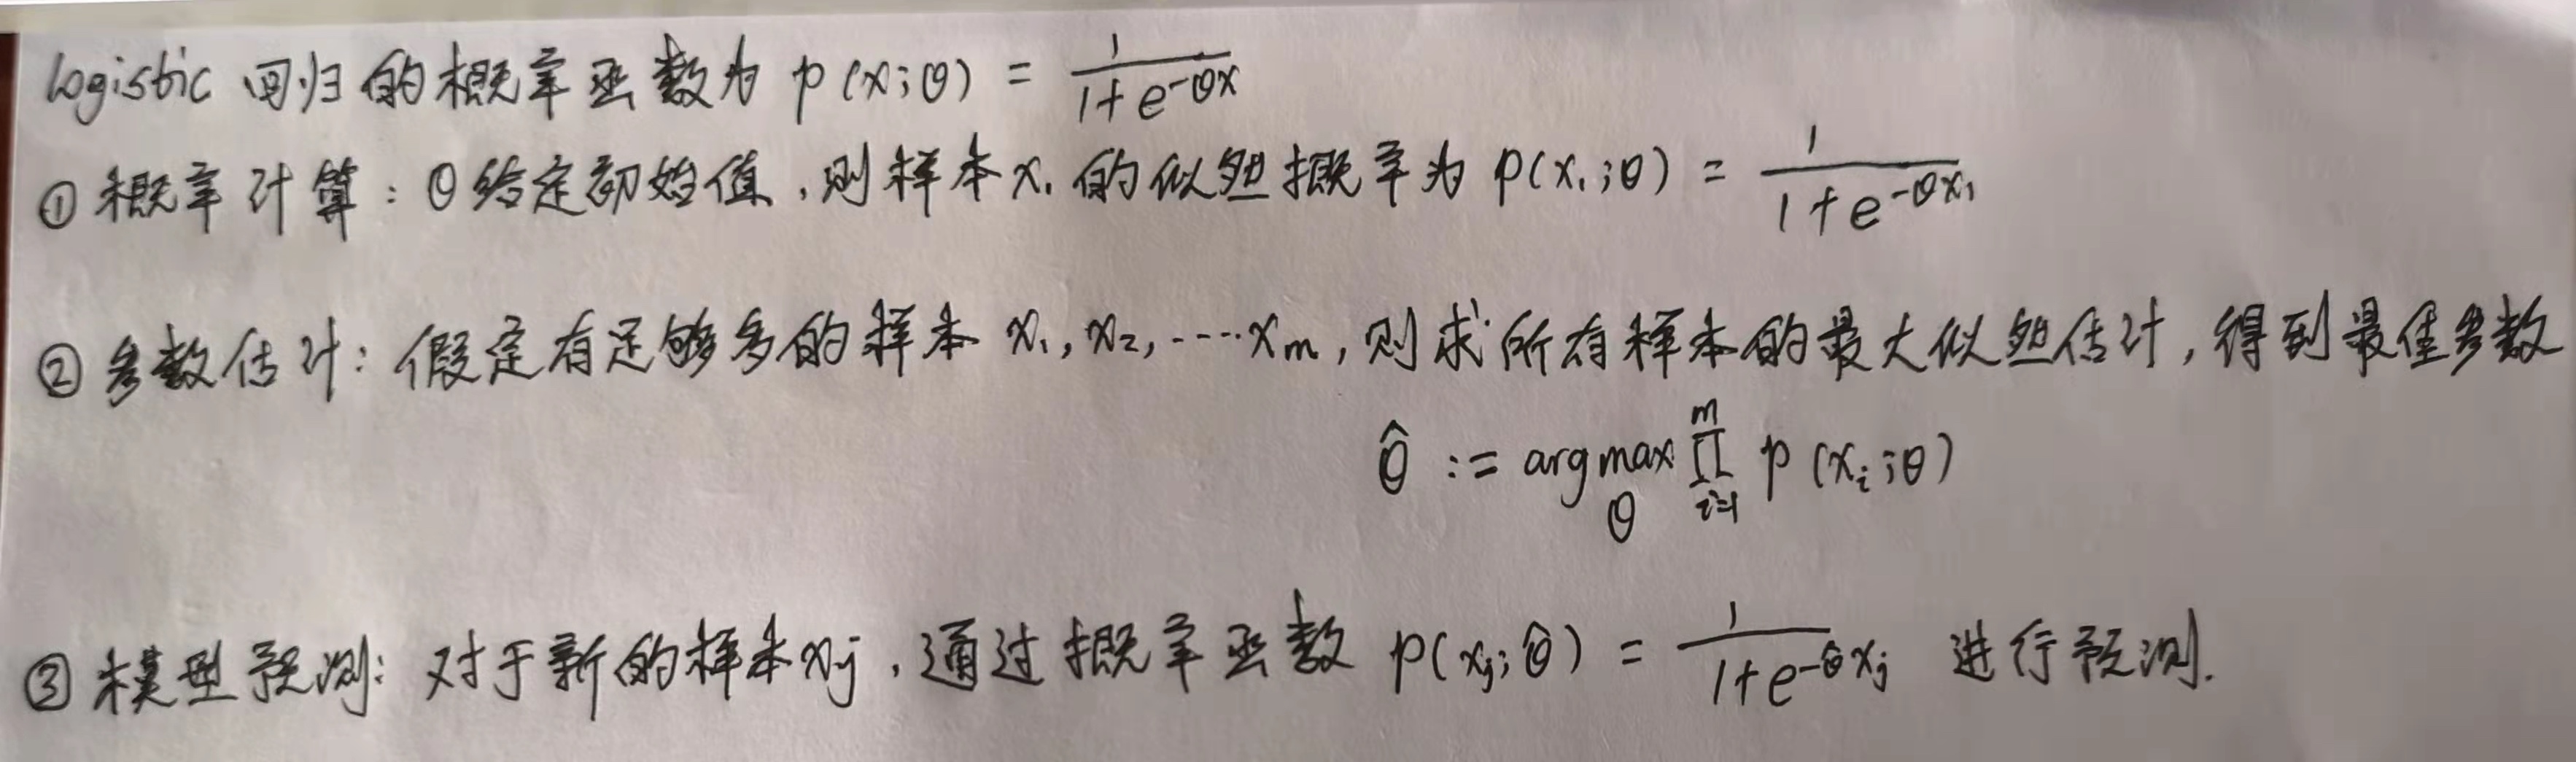 logistic 回归的概率函数为 p(x;θ) = 1/(1+e^{-θx})
① 概率计算：θ给定初始值，则样本x₁的似然概率为 p(x₁;θ) = 1/(1+e^{-θx₁})
② 参数估计：假定有足够多的样本 x₁, x₂, ----xₘ, 则求所有样本的最大似然估计，得到最佳参数
θ̂ := argmax_θ ∏_{i=1}^{m} p(xᵢ;θ)
③ 模型预测：对于新的样本xⱼ，通过概率函数 p(xⱼ;θ̂) = 1/(1+e^{-θ̂xⱼ}) 进行预测.